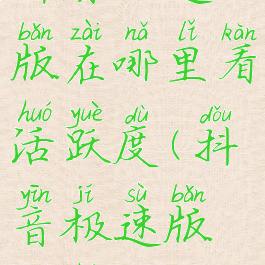 bǎn zài nǎ lǐ kàn
版在哪里看
huó yuè dù dǒu
活跃度(抖
yīn jí sù bǎn
音极速版